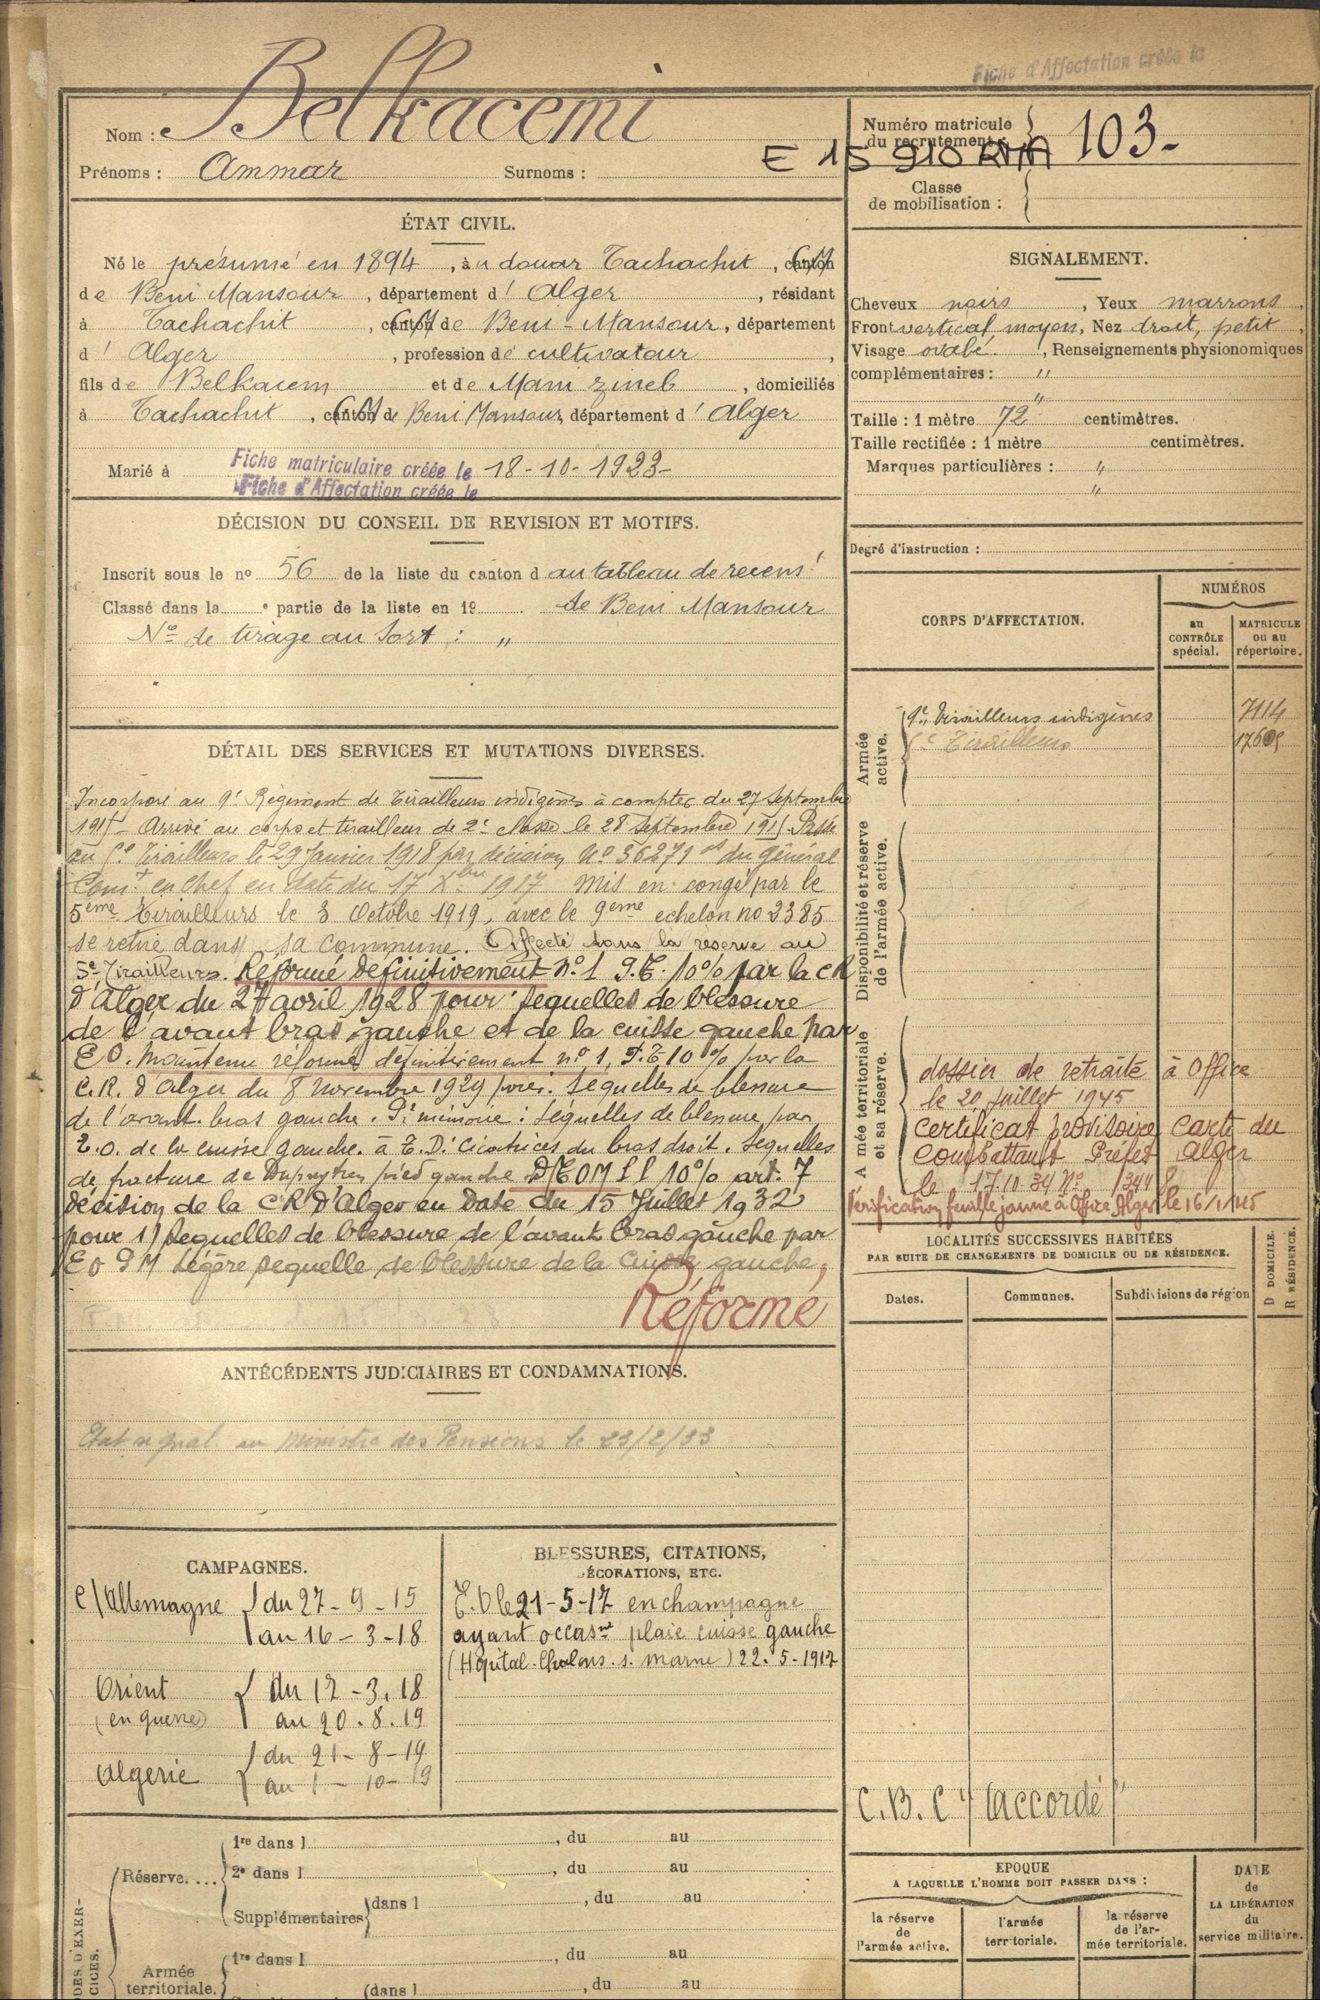 Fiche d'Affectation créée le
Nom : Belkacemi
Prénoms : Ammar Surnoms :
Numéro matricule du recrutement 103-
E 15 910 RMA
Classe de mobilisation :
ÉTAT CIVIL.
Né le présumé en 1894, à u douar Tachachit, canton CM
de Beni Mansour, département d' Alger, résidant
à Tachachit, canton CM de Beni-Mansour, département
d' Alger, profession de cultivateur,
fils de Belkacem et de Mani Zineb, domiciliés
à Tachachit, canton CM de Beni Mansour, département d' Alger
Marié à
Fiche matriculaire créée le 18-10-1923-
Fiche d'Affectation créée le
SIGNALEMENT.
Cheveux noirs, Yeux marrons,
Front vertical moyen, Nez droit, petit,
Visage ovale., Renseignements physionomiques
complémentaires : "
"
Taille : 1 mètre 72 centimètres.
Taille rectifiée : 1 mètre centimètres.
Marques particulières : "
"
Degré d'instruction :
DÉCISION DU CONSEIL DE REVISION ET MOTIFS.
Inscrit sous le no 56 de la liste du canton d au tableau de recenst
Classé dans la e partie de la liste en 19 . de Beni Mansour
No de tirage au sort : "
CORPS D'AFFECTATION.
NUMÉROS
au CONTRÔLE spécial.
MATRICULE ou au répertoire.
Armée active.
9e Tirailleurs indigènes 7114
5e Tirailleurs
Disponibilité et réserve de l'armée active.
A mée territoriale et sa réserve.
dossier de retraite à Office
le 20 juillet 1945
Certificat provisoire Carte du
Combattant Préfet Alger
le 17 10 34 No
Vérification feuille jaune à Office Alger le 16/1/45
DÉTAIL DES SERVICES ET MUTATIONS DIVERSES.
Incorporé au 9e Régiment de Tirailleurs indigènes à compter du 27 Septembre
1915- Arrivé au corps et tirailleur de 2e classe le 28 septembre 1915. Passé
au 5e Tirailleurs le 29 Janvier 1918 par décision No 36271 du Général
Comt en Chef en date du 17 Xbre 1917 Mis en congé par le
5ème Tirailleurs le 3 Octobre 1919, avec le 9ème echelon no 2385
se retire dans sa commune. Affecté dans la réserve au
5e Tirailleurs. Réformé définitivement No 1 P.T. 10% par la CR
d'Alger du 27 avril 1928 pour séquelles de blessure
de l'avant bras gauche et de la cuisse gauche par
E O. Maintenu réformé définitivement no 1, P.T 10% par la
C.R. d'Alger du 8 novembre 1929 pour : séquelles de blessure
de l'avant bras gauche. Pr mémoire : séquelles de blessure par
E.O. de la cuisse gauche. à T.D. Cicatrices du bras droit. Sequelles
de fracture de Dupuytren pied gauche. 10% art. 7
décision de la CR d'Alger en Date du 15 Juillet 1932
pour 1) sequelles de blessure de l'avant bras gauche par
E O Légère sequelle de blessure de la cuisse gauche.
Réformé
LOCALITÉS SUCCESSIVES HABITÉES
PAR SUITE DE CHANGEMENTS DE DOMICILE OU DE RÉSIDENCE.
Dates. Communes. Subdivisions de région D DOMICILE. R RÉSIDENCE.
ANTÉCÉDENTS JUDICIAIRES ET CONDAMNATIONS.
Ministre des Pensions le 23/2/33
CAMPAGNES.
C/Allemagne du 27-9-15
au 16-3-18
Orient du 17-3.18
(en guerre) au 20.8.19
Algerie du 21-8-19
au 1-10-19
BLESSURES, CITATIONS,
DÉCORATIONS, ETC.
le 21-5-17 en champagne
ayant occasnt plaie cuisse gauche
(Hôpital-Chalons. s. marne) 22.5-1917
C.B.C "accordé"
ODES D'EXER-
CICES.
Réserve....
1re dans l , du au
2e dans l , du au
Supplémentaires dans l , du au
Armée territoriale.
1re dans l , du au
dans l , du au
EPOQUE
A LAQUELLE L'HOMME DOIT PASSER DANS :
la réserve de l'armée active.
l'armée territoriale.
la réserve de l'armée territoriale.
DATE de LA LIBÉRATION du service militaire.